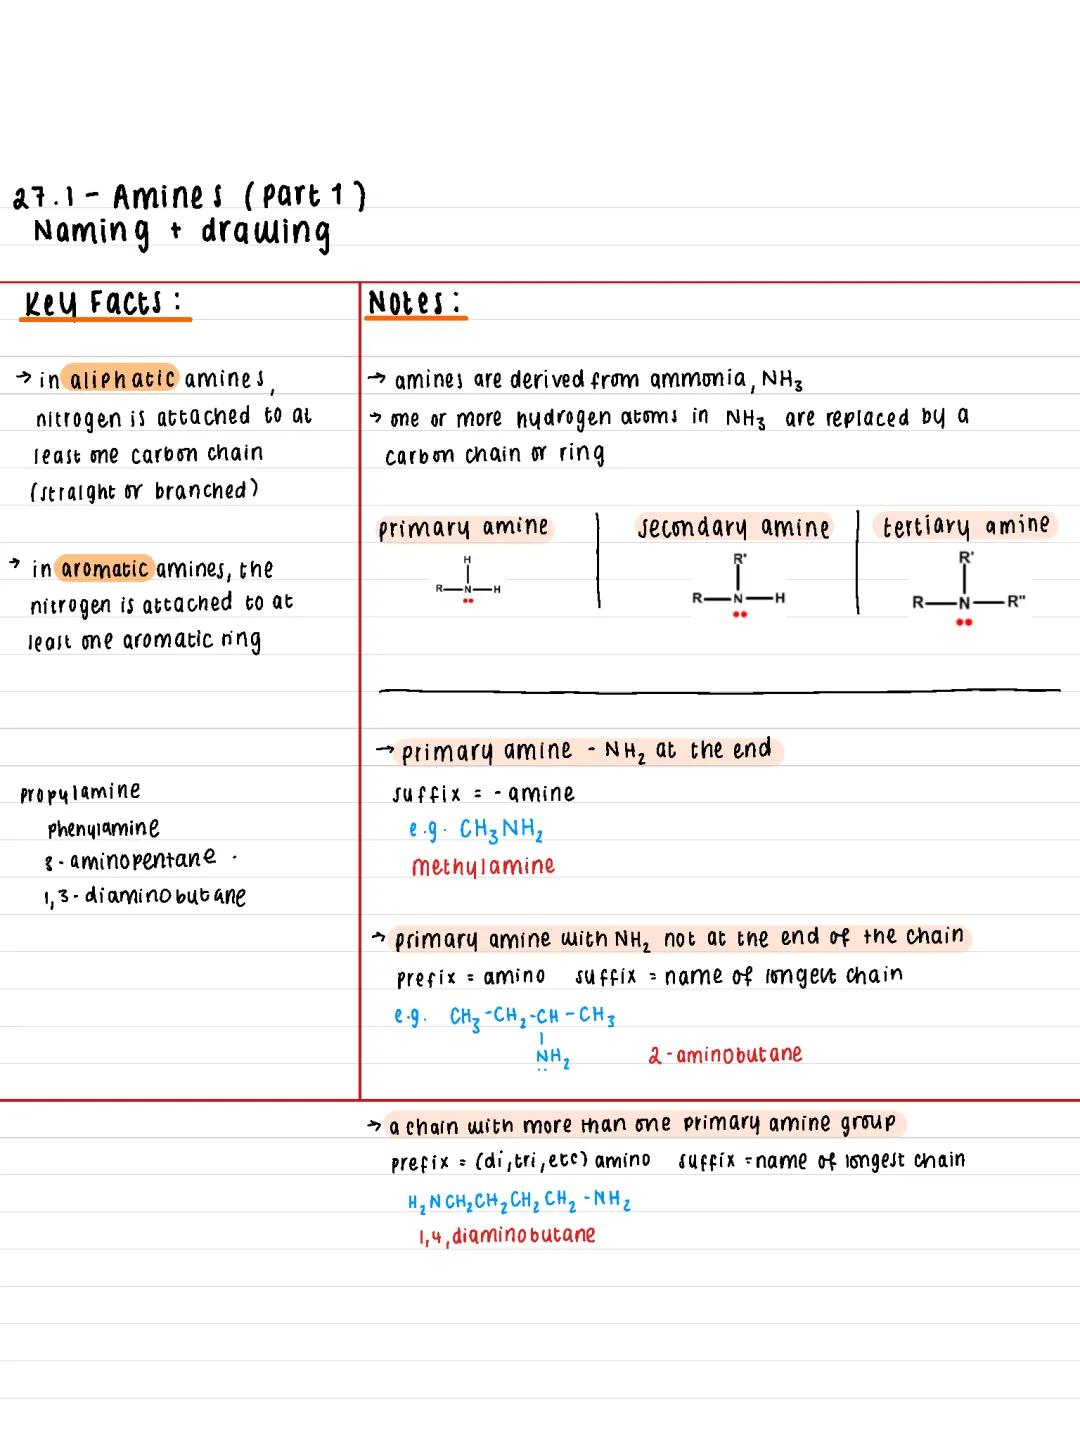 27.1 - Amines (part 1)
Naming + drawing
Key Facts :
→ in aliphatic amines,
nitrogen is attached to at
least one carbon chain
(straight or branched)
→ in aromatic amines, the
nitrogen is attached to at
least one aromatic ring
propylamine
phenylamine
3-aminopentane.
1,3-diaminobutane
Notes :
→ amines are derived from ammonia, NH₃
→ one or more hydrogen atoms in NH₃ are replaced by a
carbon chain or ring
primary amine
H
R—N—H
secondary amine
R'
R—N—H
tertiary amine
R'
R—N—R"
→ primary amine - NH₂ at the end
suffix = -amine
e.g. CH₃NH₂
methylamine
→ primary amine with NH₂ not at the end of the chain
prefix = amino suffix = name of longest chain
e.g. CH₃-CH₂-CH-CH₃
NH₂ 2-aminobutane
→ a chain with more than one primary amine group
prefix = (di, tri, etc) amino suffix = name of longest chain
H₂NCH₂CH₂CH₂CH₂-NH₂
1,4,diaminobutane